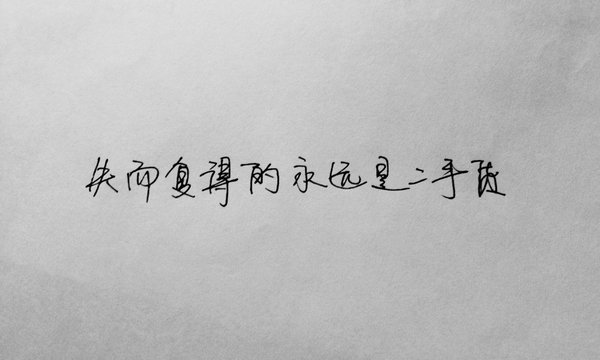 失而复得的永远是二手货